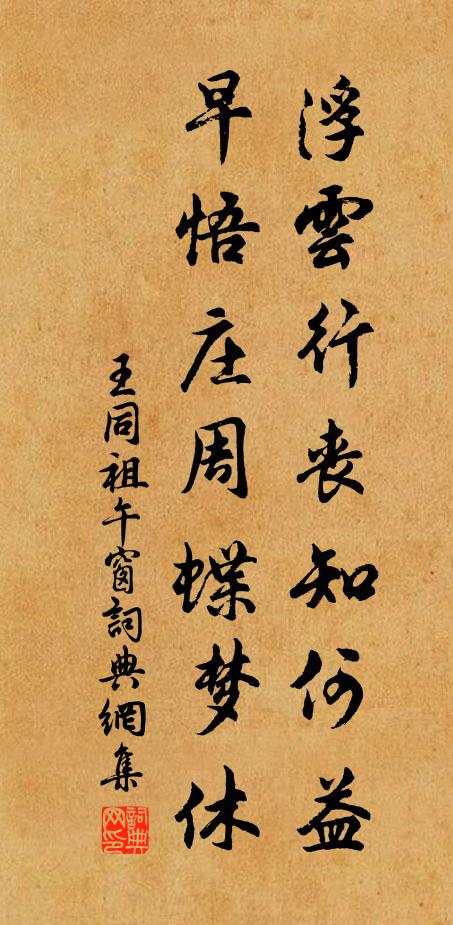 浮雲行丧知何益
早悟庄周蝶梦休
王同祖午窗詞典網集
詞典网印